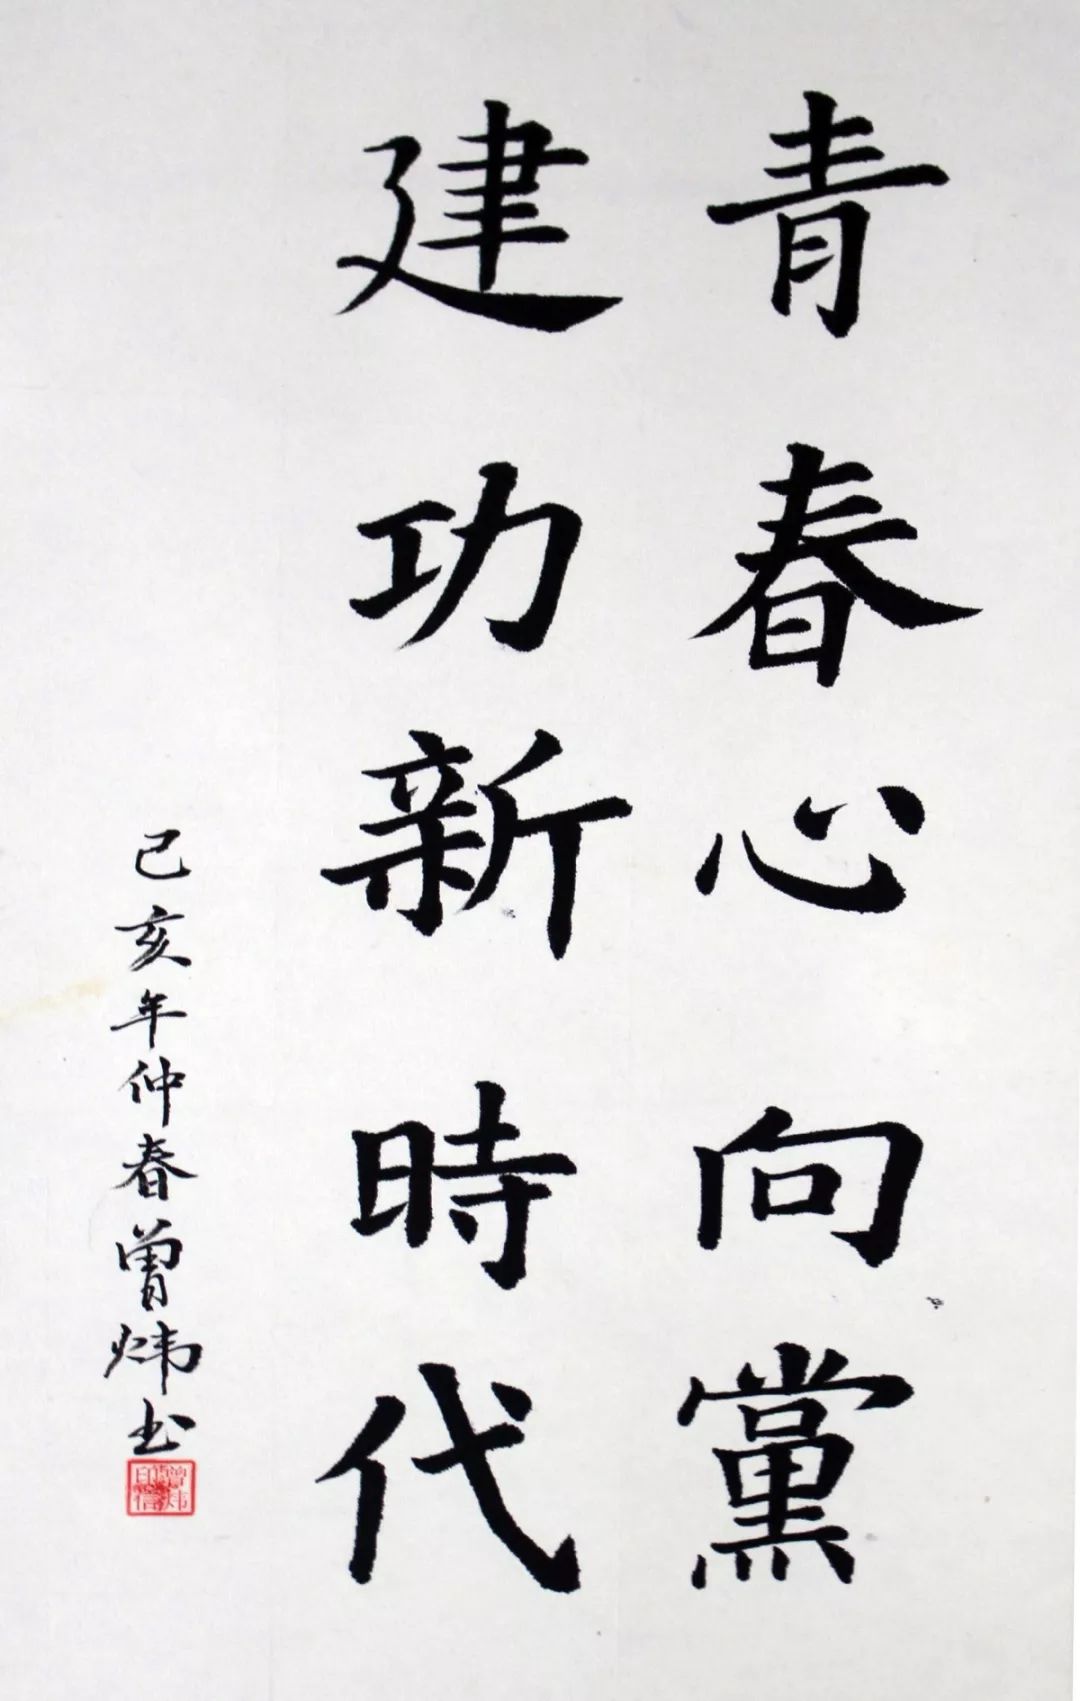 青春心向黨
建功新時代
己亥年仲春曾炜书
曾炜印信